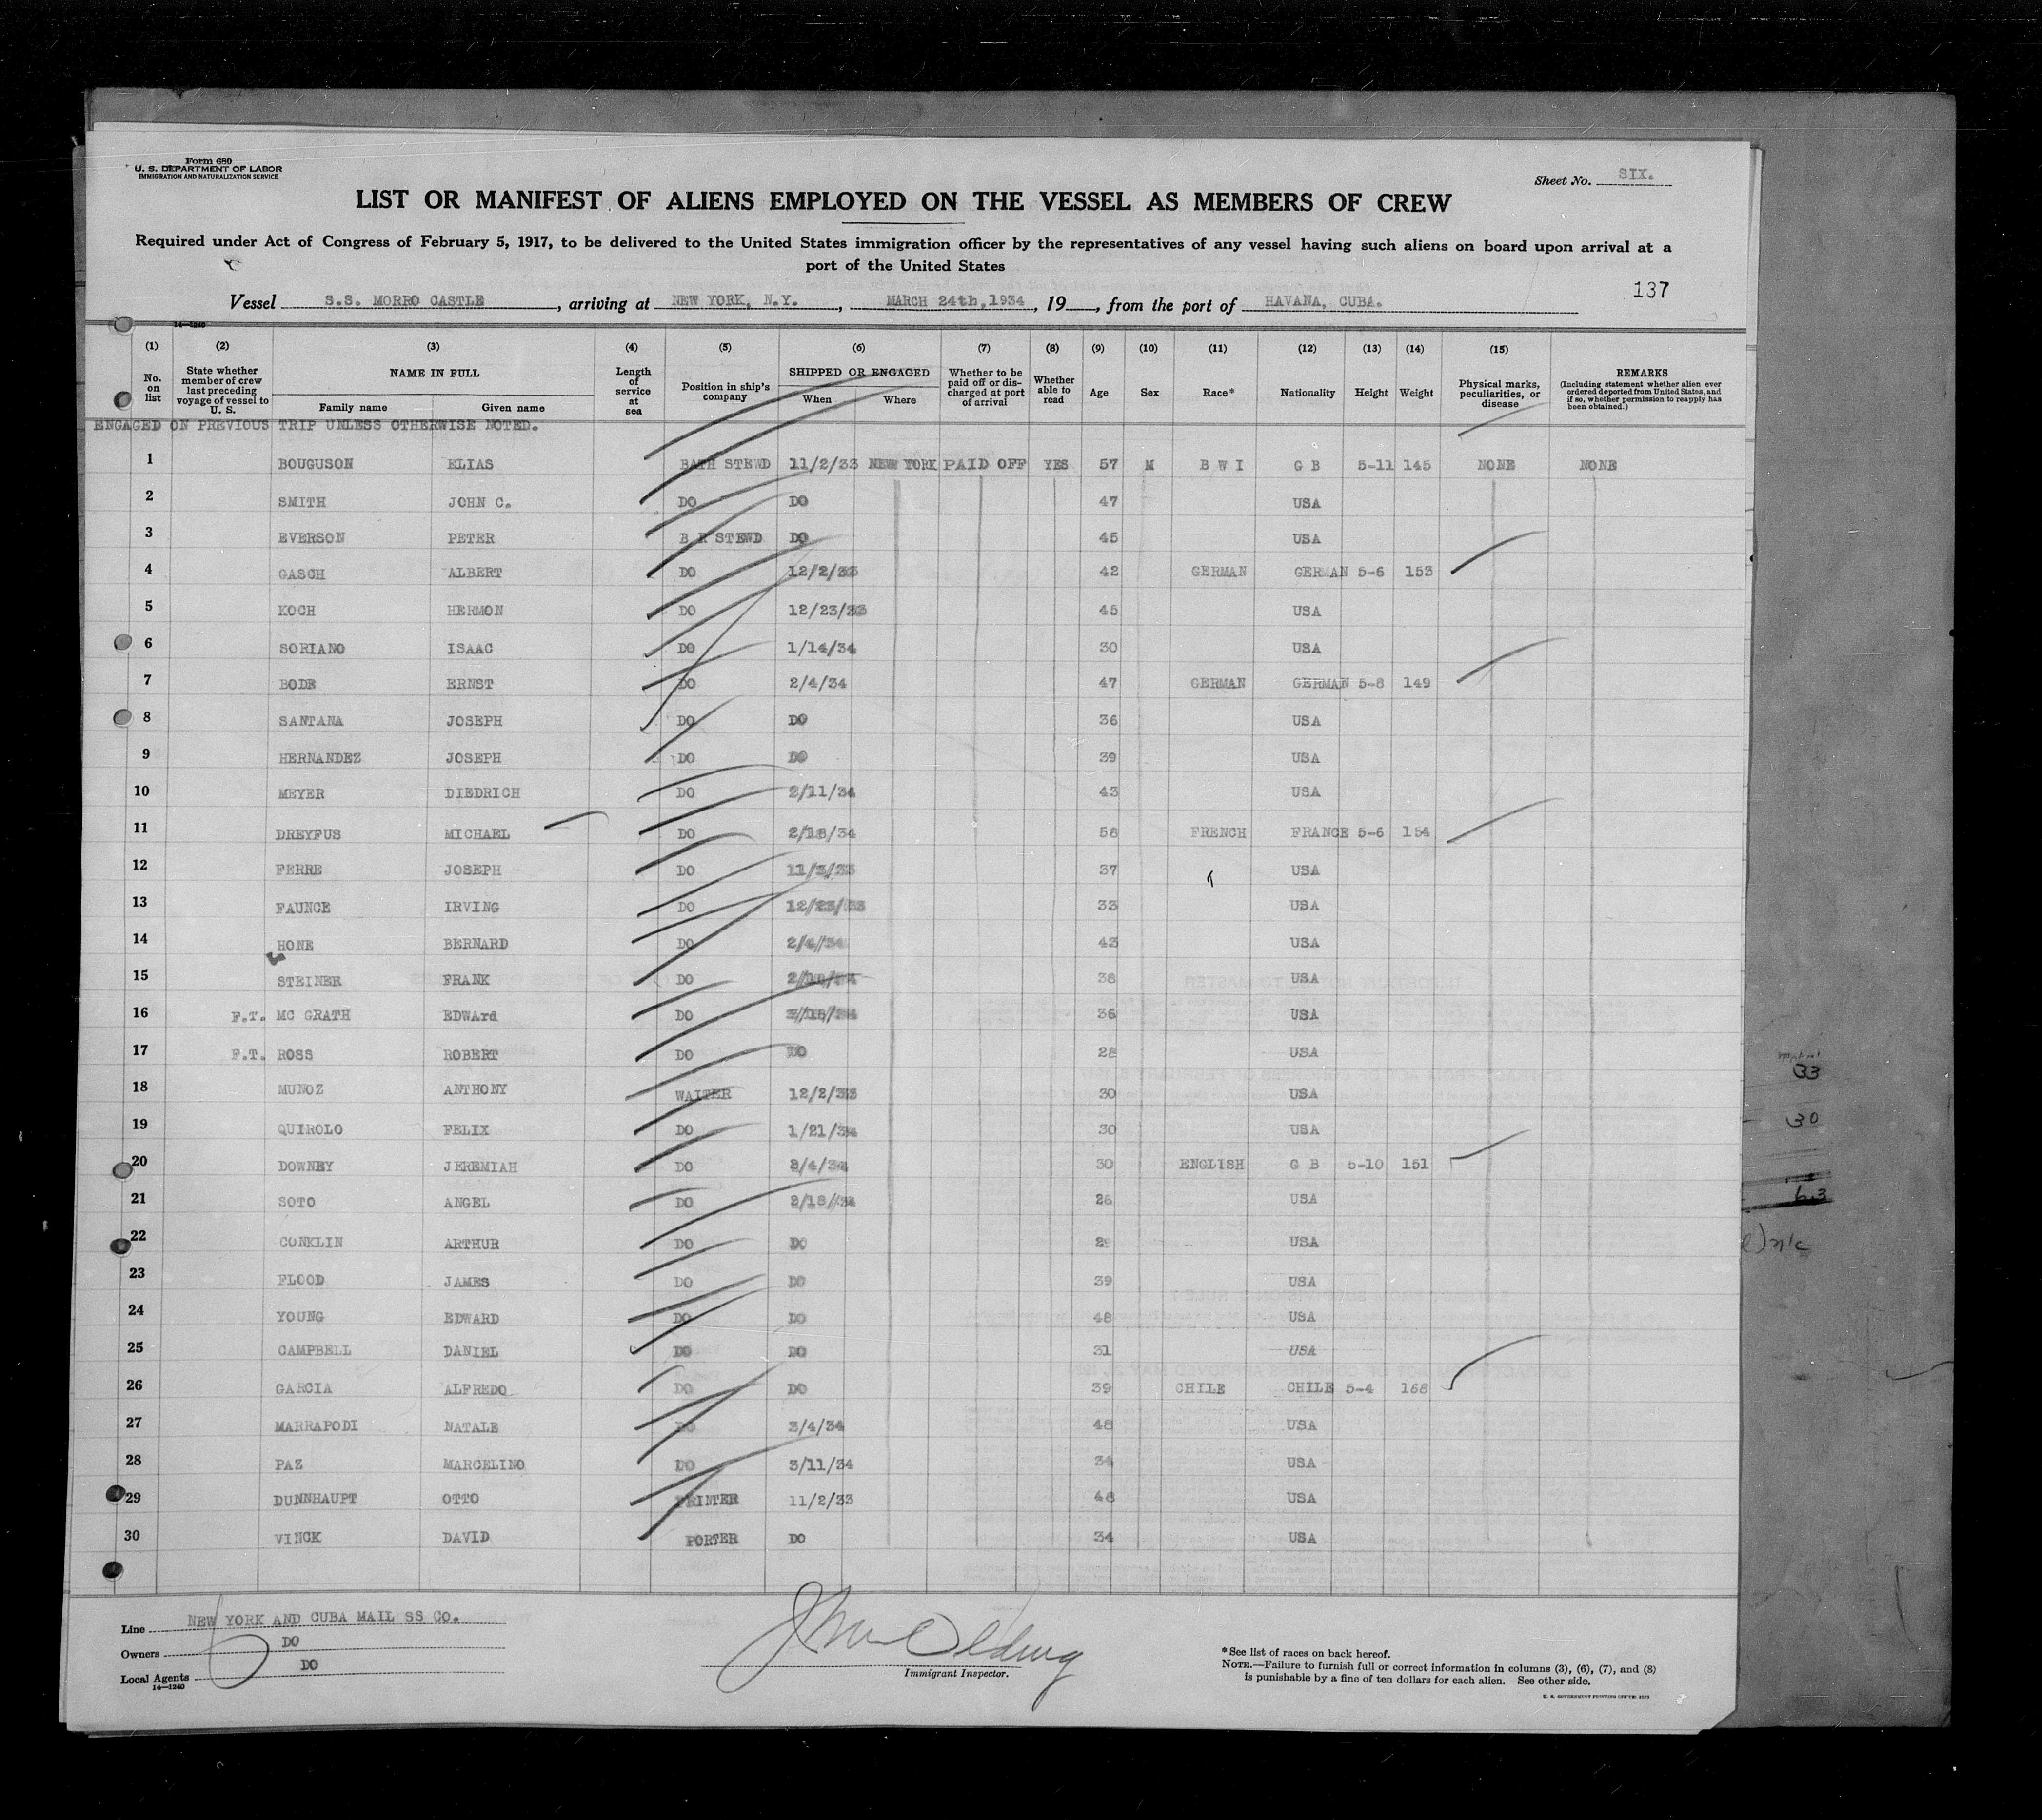 Form 680
U. S. DEPARTMENT OF LABOR
IMMIGRATION AND NATURALIZATION SERVICE
Sheet No. SIX.
LIST OR MANIFEST OF ALIENS EMPLOYED ON THE VESSEL AS MEMBERS OF CREW
Required under Act of Congress of February 5, 1917, to be delivered to the United States immigration officer by the representatives of any vessel having such aliens on board upon arrival at a
port of the United States
137
Vessel S.S. MORRO CASTLE, arriving at NEW YORK, N.Y., MARCH 24th,1934, 19, from the port of HAVANA, CUBA.
14—1240
(1) (2) (3) (4) (5) (6) (7) (8) (9) (10) (11) (12) (13) (14) (15)
No. on list
State whether member of crew last preceding voyage of vessel to U. S.
NAME IN FULL
Family name Given name
Length of service at sea
Position in ship's company
SHIPPED OR ENGAGED
When Where
Whether to be paid off or discharged at port of arrival
Whether able to read
Age Sex Race* Nationality Height Weight
Physical marks, peculiarities, or disease
REMARKS
(Including statement whether alien ever ordered deported from United States, and if so, whether permission to reapply has been obtained.)
ENGAGED ON PREVIOUS TRIP UNLESS OTHERWISE NOTED.
1 BOUGUSON ELIAS BATH STEWD 11/2/33 NEW YORK PAID OFF YES 57 M B W I G B 5-11 145 NONE NONE
2 SMITH JOHN C. DO DO 47 USA
3 EVERSON PETER B R STEWD DO 45 USA
4 GASCH ALBERT DO 12/2/33 42 GERMAN GERMAN 5-6 153
5 KOCH HERMON DO 12/23/33 45 USA
6 SORIANO ISAAC DO 1/14/34 30 USA
7 BODE ERNST DO 2/4/34 47 GERMAN GERMAN 5-8 149
8 SANTANA JOSEPH DO DO 36 USA
9 HERNANDEZ JOSEPH DO DO 39 USA
10 MEYER DIEDRICH DO 2/11/34 43 USA
11 DREYFUS MICHAEL DO 2/18/34 58 FRENCH FRANCE 5-6 154
12 FERRE JOSEPH DO 11/3/33 37 USA
13 FAUNCE IRVING DO 12/23/33 33 USA
14 HONE BERNARD DO 2/4/34 43 USA
15 STEINER FRANK DO 2/18/34 38 USA
16 F.T. MC GRATH EDWArd DO 3/18/34 36 USA
17 F.T. ROSS ROBERT DO DO 28 USA
18 MUNOZ ANTHONY WAITER 12/2/33 30 USA
19 QUIROLO FELIX DO 1/21/34 30 USA
20 DOWNEY JEREMIAH DO 2/4/34 30 ENGLISH G B 5-10 151
21 SOTO ANGEL DO 2/18/34 26 USA
22 CONKLIN ARTHUR DO DO 29 USA
23 FLOOD JAMES DO DO 39 USA
24 YOUNG EDWARD DO DO 48 USA
25 CAMPBELL DANIEL DO DO 31 USA
26 GARCIA ALFREDO DO DO 39 CHILE CHILE 5-4 168
27 MARRAPODI NATALE DO 3/4/34 48 USA
28 PAZ MARCELINO DO 3/11/34 34 USA
29 DUNNHAUPT OTTO PRINTER 11/2/33 48 USA
30 VINCK DAVID PORTER DO 34 USA
33
30
63
Line NEW YORK AND CUBA MAIL SS CO.
Owners DO
Local Agents DO
14—1240
Immigrant Inspector.
*See list of races on back hereof.
NOTE.—Failure to furnish full or correct information in columns (3), (6), (7), and (8)
is punishable by a fine of ten dollars for each alien. See other side.